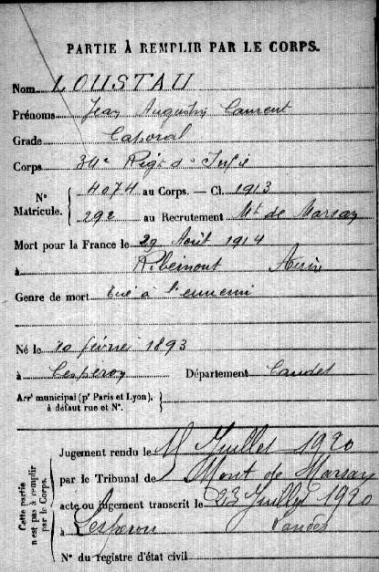 PARTIE À REMPLIR PAR LE CORPS.
Nom LOUSTAU
Prénoms Jean Augustin Laurent
Grade Caporal
Corps 34e Régt d'Infie
N° Matricule. { 4074 au Corps. — Cl. 1913
292 au Recrutement Mt de Marsan
Mort pour la France le 29 Août 1914
à Ribemont Aisne
Genre de mort tué à l'ennemi
Né le 10 février 1893
à Lesperon Département Landes
Arrt municipal (pr Paris et Lyon), à défaut rue et N°. }
Cette partie n'est pas à remplir par le Corps.
Jugement rendu le Juillet 1920
par le Tribunal de Mont de Marsan
acte ou jugement transcrit le 23 Juillet 1920
à Lesperon Landes
N° du registre d'état civil